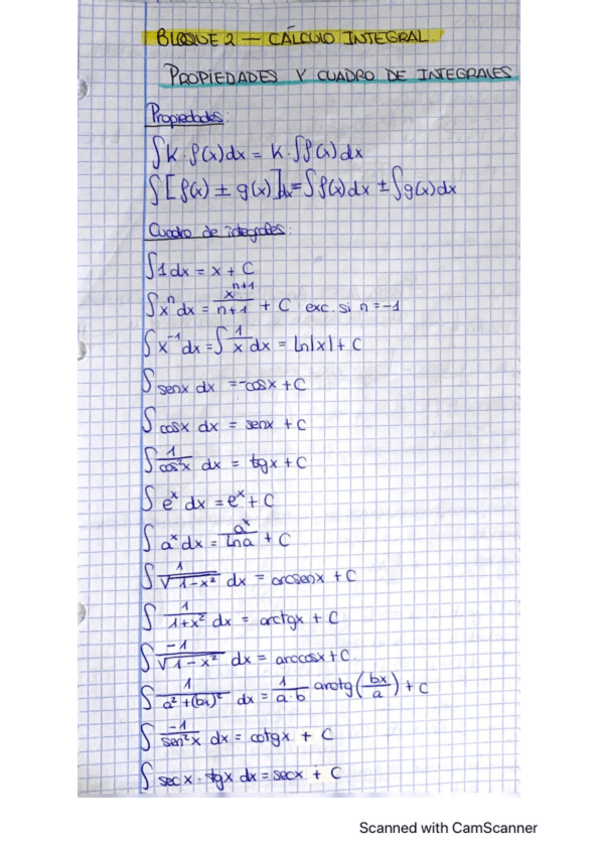 BLOQUE 2 — CÁLCULO INTEGRAL
PROPIEDADES Y CUADRO DE INTEGRALES
Propiedades:
∫k·f(x)dx = k·∫f(x)dx
∫[f(x) ± g(x)]dx = ∫f(x)dx ± ∫g(x)dx
Cuadro de integrales:
∫1dx = x + C
∫xⁿdx = xⁿ⁺¹/n+1 + C exc. si n = -1
∫x⁻¹dx = ∫1/x dx = Ln|x| + C
∫senx dx = -cosx + C
∫cosx dx = senx + C
∫1/cos²x dx = tgx + C
∫eˣ dx = eˣ + C
∫aˣdx = aˣ/Lna + C
∫1/√(1-x²) dx = arcsenx + C
∫1/1+x² dx = arctgx + C
∫-1/√(1-x²) dx = arccosx + C.
∫1/a²+(bx)² dx = 1/a·b arctg(bx/a) + C
∫-1/sen²x dx = cotgx + C
∫secx·tgx dx = secx + C
Scanned with CamScanner